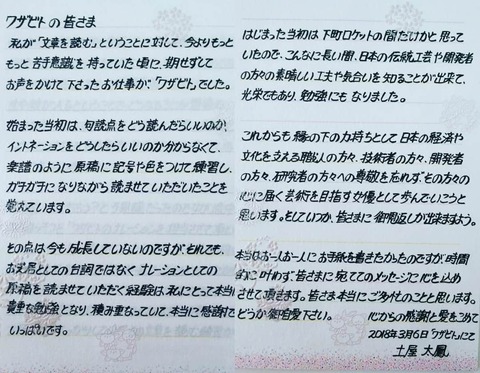 ワザビトの皆さま
私が「文章を読む」ということに対して、今よりもっと
もっと苦手意識を持っていた頃に、期せずして
お声をかけて下さったお仕事が「ワザビト」でした。
始まった当初は、句読点をどう読んだらいいのか、
イントネーションをどうしたらいいのか分からなくて、
楽譜のように原稿に記号や色をつけて練習し、
ガチガチになりながら読ませていただいたことを
覚えています。
その点は今も成長していないのですが、それでも、
お芝居としての台詞ではなくナレーションとしての
原稿を読ませていただく経験は、私にとって本当に
貴重な勉強となり、積み重なっていて、本当に感謝で
いっぱいです。
はじまった当初は下町ロケットの間だけかと思って
いたので、こんなに長い間、日本の伝統工芸や開発者
の方々の素晴しい工夫や気合いを知ることが出来て、
光栄でもあり、勉強にもなりました。
これからも縁の下の力持ちとして日本の経済や
文化を立える職人の方々、技術者の方々、開発者
の方々、研究者の方々への尊敬を忘れず、その方々の
心に届く芸術を目指す女優として歩んでいこうと
思います。そしていつか、皆さまに御恩返しが出来ますよう。
本当はお一人お一人にお手紙を書きたかったのですが、時間
的に叶わず、皆さまに宛ててのメッセージに心を込め
させて頂きます。皆さま本当にご多忙のことと思います。
どうか御自愛下さい。 心からの感謝と愛をこめて
2018年3月6日「ワザビト」にて
土屋 太鳳